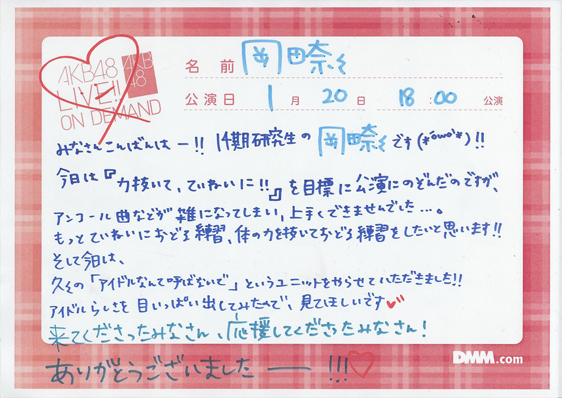 AKB48
LIVE!!
ON DEMAND
AKB
48
名前 岡田奈々
公演日 1月20日 18:00公演
みなさんこんばんはー!! 14期研究生の岡田奈々です(*^ω^*)!!
今日は『力抜いて、ていねいに!!』を目標に公演にのぞんだのですが、
アンコール曲などが雑になってしまい、上手くできませんでした…。
もっとていねいにおどる練習、体の力を抜いておどる練習をしたいと思います!!
そして今日は、
久々の「アイドルなんて呼ばないで」というユニットをやらせていただきました!!
アイドルらしさを目いっぱい出してみたので、見てほしいです
来てくださったみなさん、応援してくださったみなさん!
ありがとうございましたー!!!
DMM.com